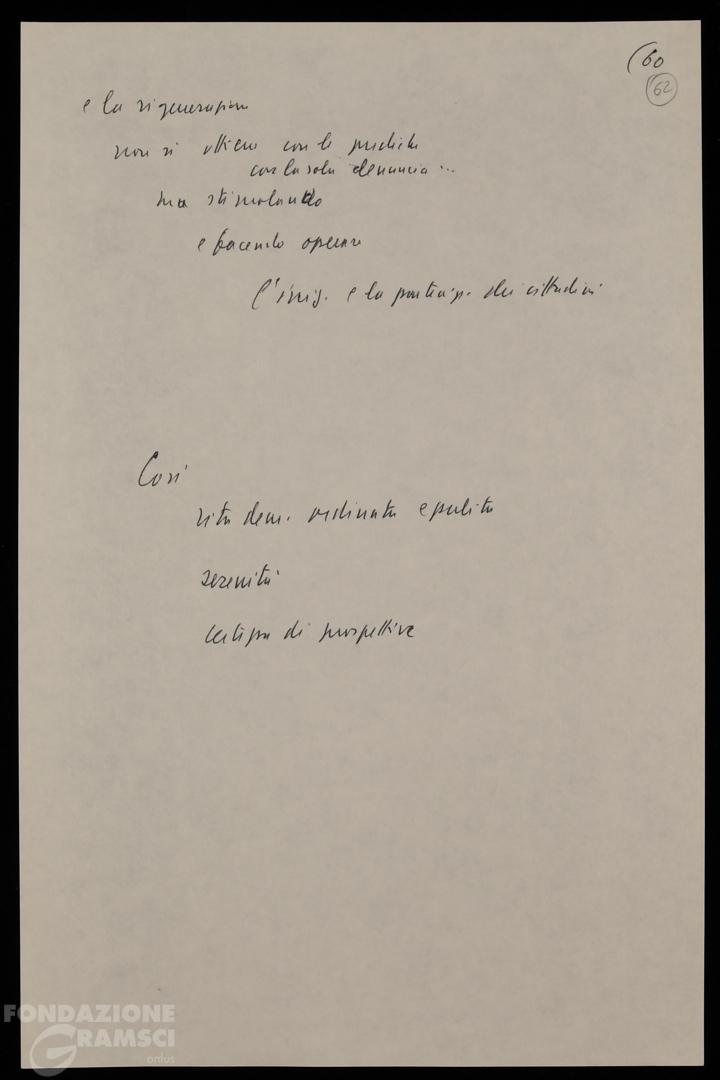 (60
62
e la rigenerazione
non si ottiene con le prediche
con la sola denuncia...
ma stimolando
e facendo operare
l'inig. e la partecip. dei cittadini
Così
vita dem. ordinata e pulita
serenità
certezza di prospettive
FONDAZIONE
GRAMSCI
onlus